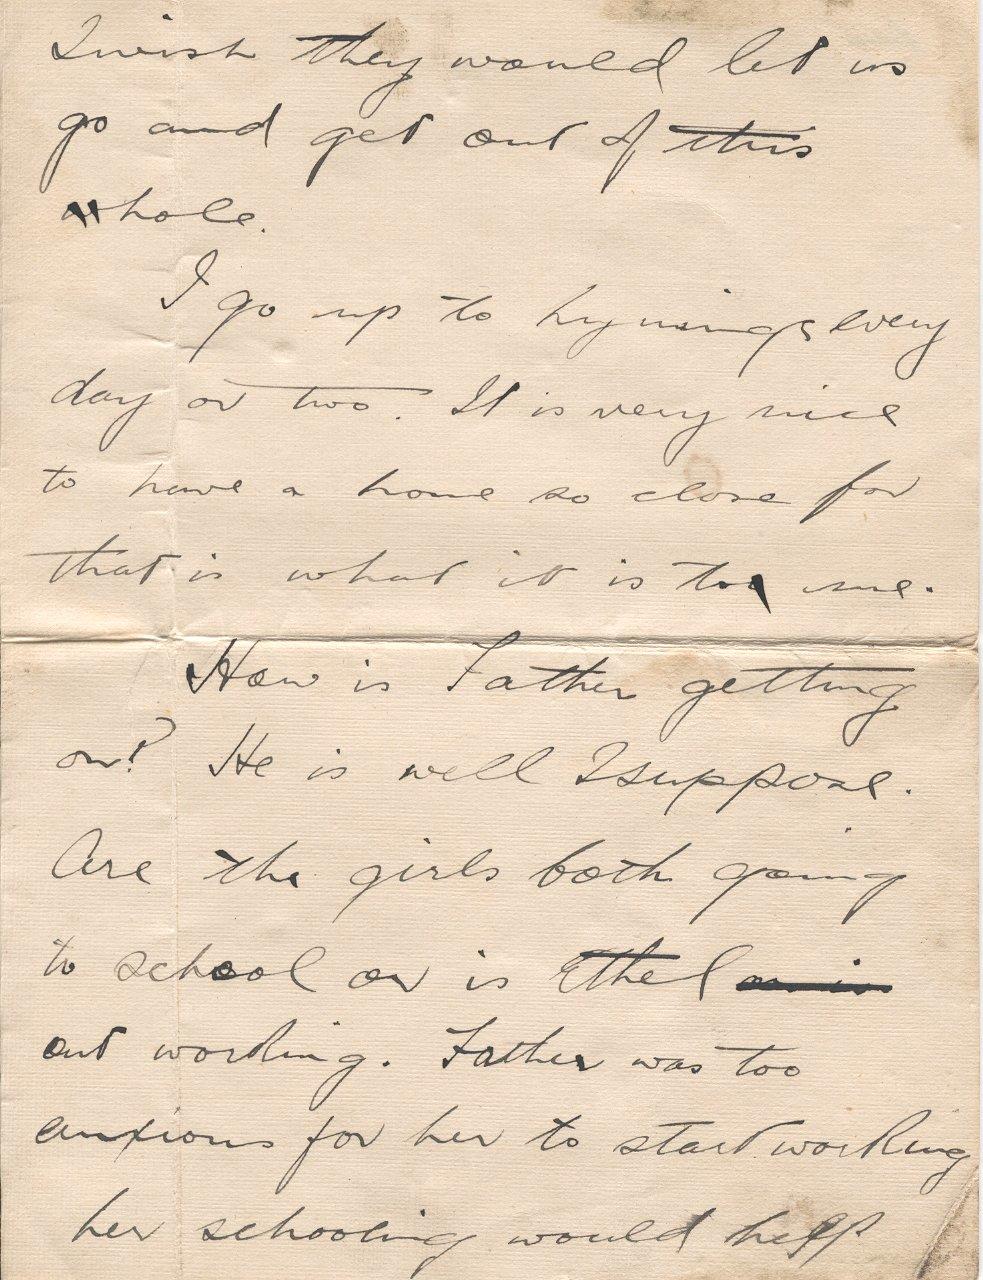 I wish they would let us
go and get out of this
whole.
I go up to hynings every
day or two. It is very nice
to have a home so close for
that is what it is to me.
How is Father getting
on? He is well I suppose.
Are the girls both going
to school or is Ethel
out working. Father was too
anxious for her to start working
her schooling would help